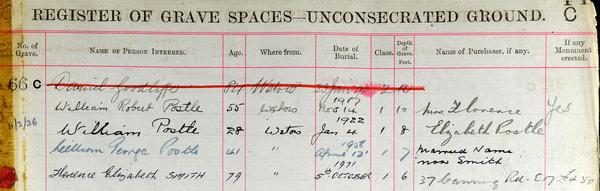 REGISTER OF GRAVE SPACES—UNCONSECRATED GROUND.
C
No. of Grave. NAME OF PERSON INTERRED. Age. Where from. Date of Burial. Class. Depth of Grave. Feet. Name of Purchaser, if any. If any Monument erected.
66 C Daniel Goodliffe 84
1917
William Robert Postle 55 Wstow Nov 14 1 10 Mrs Florence Yes
1922
William Postle 28 Wstow Jan 4 1 8 Elizabeth Postle
1958
William George Postle 41 April 12 1 7 Married Name
now Smith
1971
Florence Elizabeth SMITH 79 5th OCTOBER 1 6 37 Canning Rd. E17